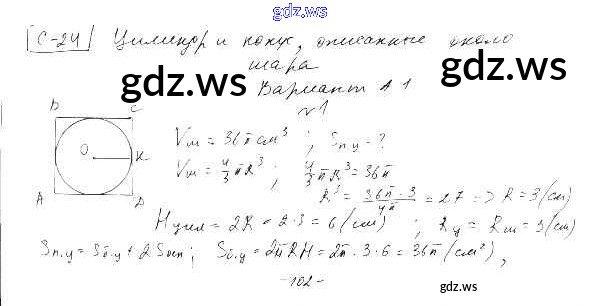 gdz.ws
С-24 Цилиндр и конус, описанные около
шара
gdz.ws
gdz.ws
Вариант А1
№1
B C
O K
A D
Vш = 36π см³ ; Sп.ц - ?
Vш = 4/3 πR³ ; 4/3 πR³ = 36π
R³ = 36π · 3 / 4π = 27 => R = 3 (см)
Hцил = 2R = 2 · 3 = 6 (см) ; Rц = Rш = 3 (см)
Sп.ц = Sб.ц + 2Sосн ; Sб.ц = 2πRH = 2π · 3 · 6 = 36π (см²),
- 102 -
gdz.ws
gdz.ws